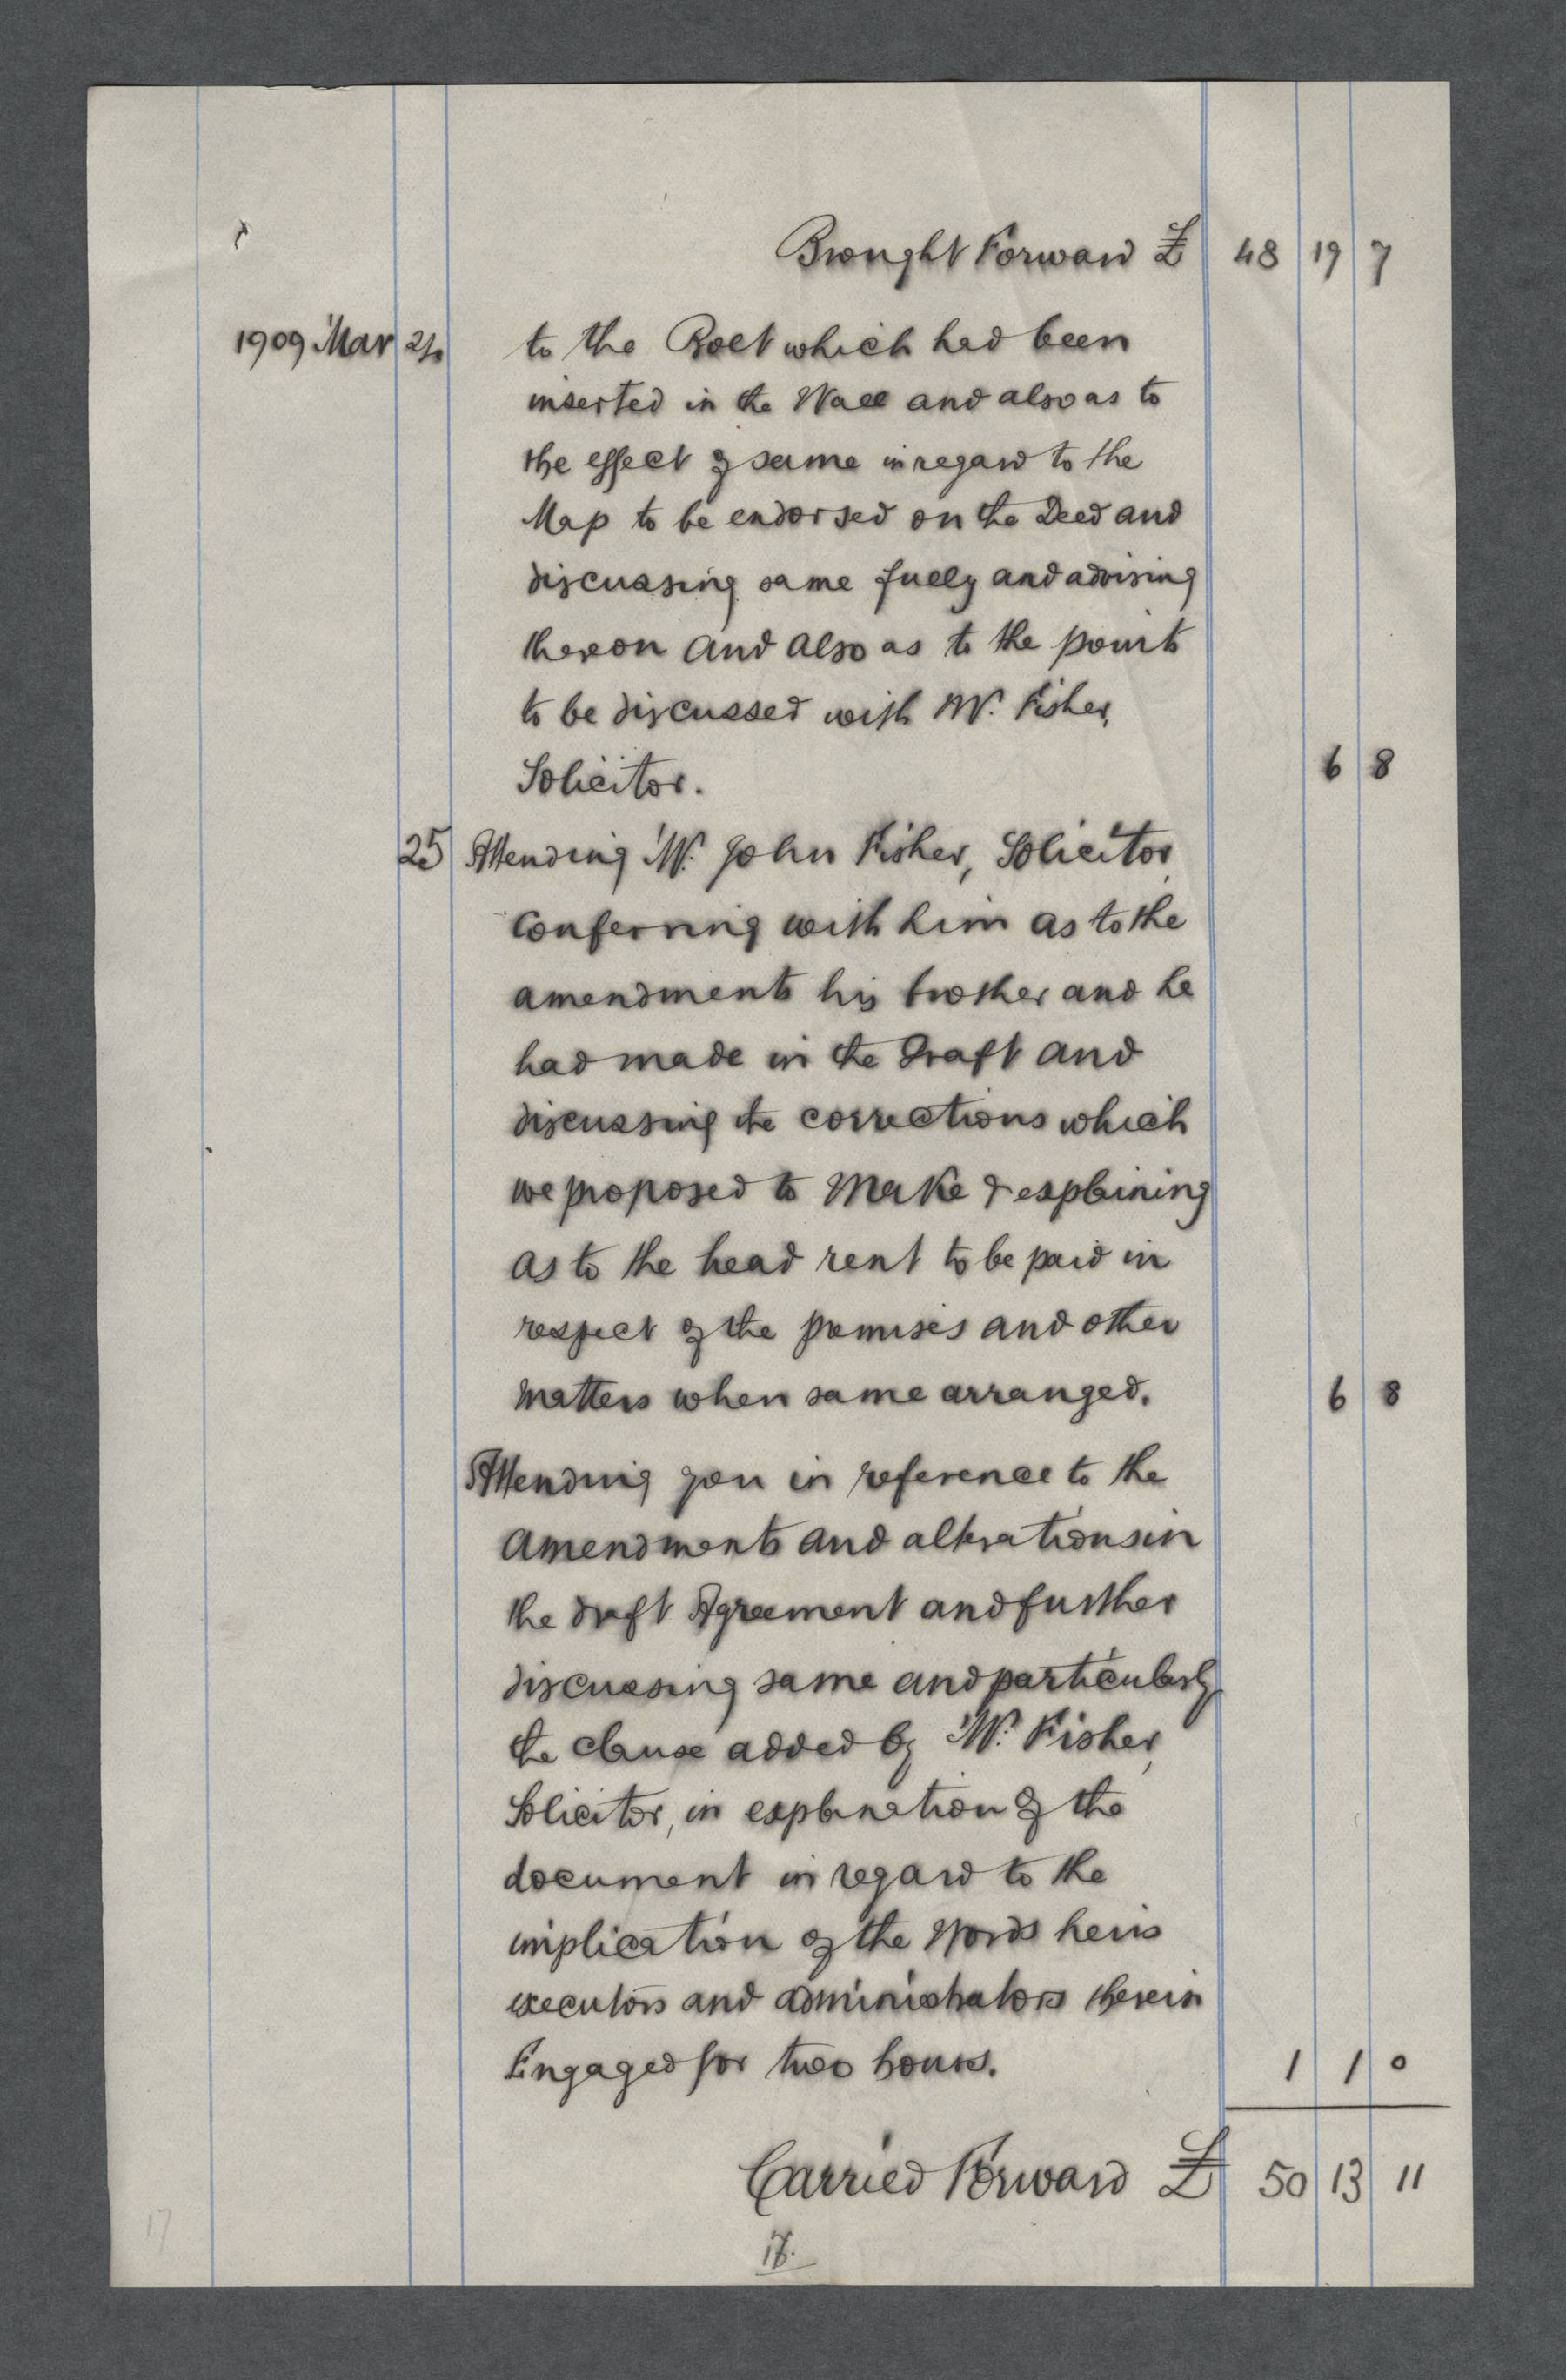 Brought Forward £ 48 19 7
1909 Mar 24 to the Bolt which had been
inserted in the Wall and also as to
the effect of same in regard to the
Map to be endorsed on the Deed and
discussing same fully and advising
thereon and also as to the points
to be discussed with Mr. Fisher,
Solicitor. 6 8
25 Attending Mr. John Fisher, Solicitor,
conferring with him as to the
amendments his brother and he
had made in the Draft and
discussing the corrections which
we proposed to make & explaining
as to the head rent to be paid in
respect of the premises and other
matters when same arranged. 6 8
Attending you in reference to the
amendments and alterations in
the draft Agreement and further
discussing same and particularly
the clause added by Mr. Fisher,
Solicitor, in explanation of the
document in regard to the
implication of the words heirs
executors and administrators therein
Engaged for two hours. 1 1 0
Carried Forward £ 50 13 11
17.
17